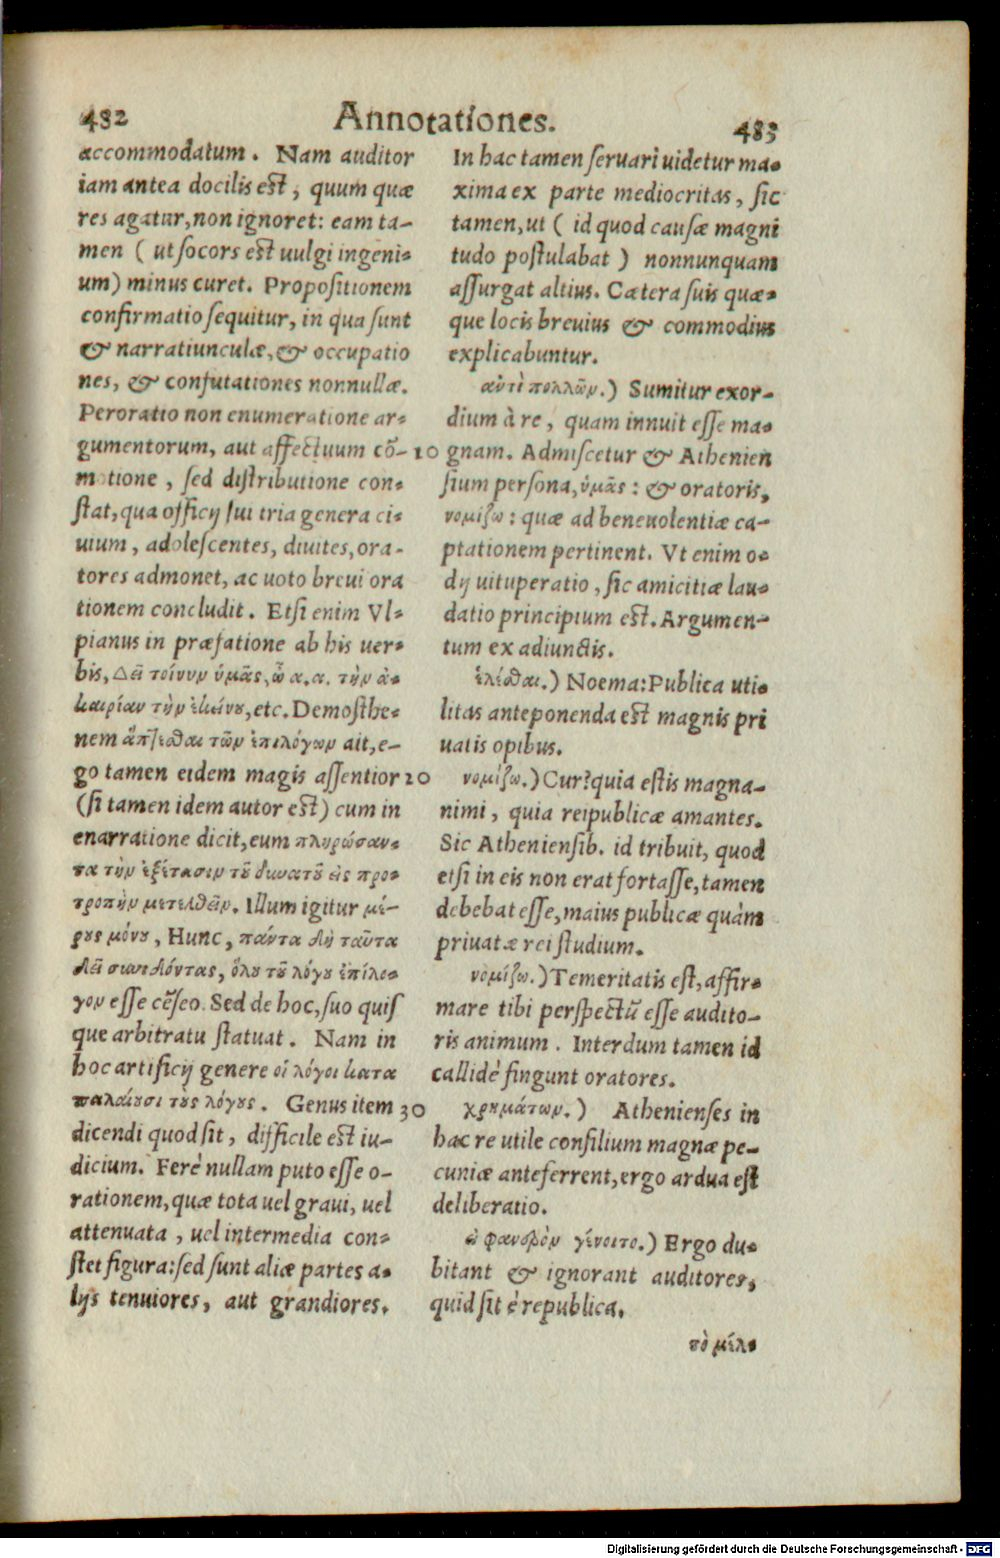 482
Annotationes.
483
accommodatum. Nam auditor
iam antea docilis est, quum quæ
res agatur, non ignoret: eam ta-
men ( ut socors est uulgi ingeni-
um) minus curet. Propositionem
confirmatio sequitur, in qua sunt
& narratiunculæ, & occupatio
nes, & confutationes nonnullæ.
Peroratio non enumeratione ar-
gumentorum, aut affectuum cō-
motione, sed distributione con-
stat, qua officij sui tria genera ci-
uium, adolescentes, diuites, ora-
tores admonet, ac uoto breui ora
tionem concludit. Etsi enim Vl-
pianus in præfatione ab his uer-
bis, Δεῖ τοίνυν ὑμᾶς, ὦ α. α. τὴν ἀ-
καιρίαν τὴν ἐκείνου, etc. Demosthe-
nem ἅπτεσθαι τῶν ἐπιλόγων ait, e-
go tamen eidem magis assentior
(si tamen idem autor est) cum in
enarratione dicit, eum πληρώσαν-
τα τὴν ἐξέτασιν τοῦ δυνατοῦ εἰς προ-
τροπὴν μετελθεῖν. Illum igitur μέ-
ρους μόνου, Hunc, πάντα δὴ ταῦτα
δεῖ συνιδόντας, ὅλου τοῦ λόγου ἐπίλο-
γον esse cēseo. Sed de hoc, suo quis
que arbitratu statuat. Nam in
hoc artificij genere οἱ λόγοι κατα
παλαίουσι τοὺς λόγους. Genus item
dicendi quod sit, difficile est iu-
dicium. Ferè nullam puto esse o-
rationem, quæ tota uel graui, uel
attenuata, uel intermedia con-
stet figura: sed sunt aliæ partes a-
lijs tenuiores, aut grandiores.
10
20
30
In hac tamen seruari uidetur ma-
xima ex parte mediocritas, sic
tamen, ut ( id quod causæ magni
tudo postulabat ) nonnunquam
assurgat altius. Cætera suis quæ-
que locis breuius & commodius
explicabuntur.
ἀντὶ πολλῶν.) Sumitur exor-
dium à re, quam innuit esse ma-
gnam. Admiscetur & Athenien
sium persona, ὑμᾶς: & oratoris,
νομίζω: quæ ad beneuolentiæ ca-
ptationem pertinent. Vt enim o-
dij uituperatio, sic amicitiæ lau-
datio principium est. Argumen-
tum ex adiunctis.
ἑλέσθαι.) Noema: Publica uti-
litas anteponenda est magnis pri
uatis opibus.
νομίζω.) Cur? quia estis magna-
nimi, quia reipublicæ amantes.
Sic Atheniensib. id tribuit, quod
etsi in eis non erat fortasse, tamen
debebat esse, maius publicæ quàm
priuatæ rei studium.
νομίζω.) Temeritatis est, affir-
mare tibi perspectū esse audito-
ris animum. Interdum tamen id
callidè fingunt oratores.
χρημάτων.) Athenienses in
hac re utile consilium magnæ pe-
cuniæ anteferrent, ergo ardua est
deliberatio.
εἰ φανερὸν γένοιτο.) Ergo du-
bitant & ignorant auditores,
quid sit è republica.
τὸ μέλ-
Digitalisierung gefördert durch die Deutsche Forschungsgemeinschaft - DFG